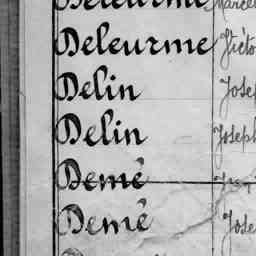 Deleurme Victo
Delin Josep
Delin Joseph
Demé
Demé Jose